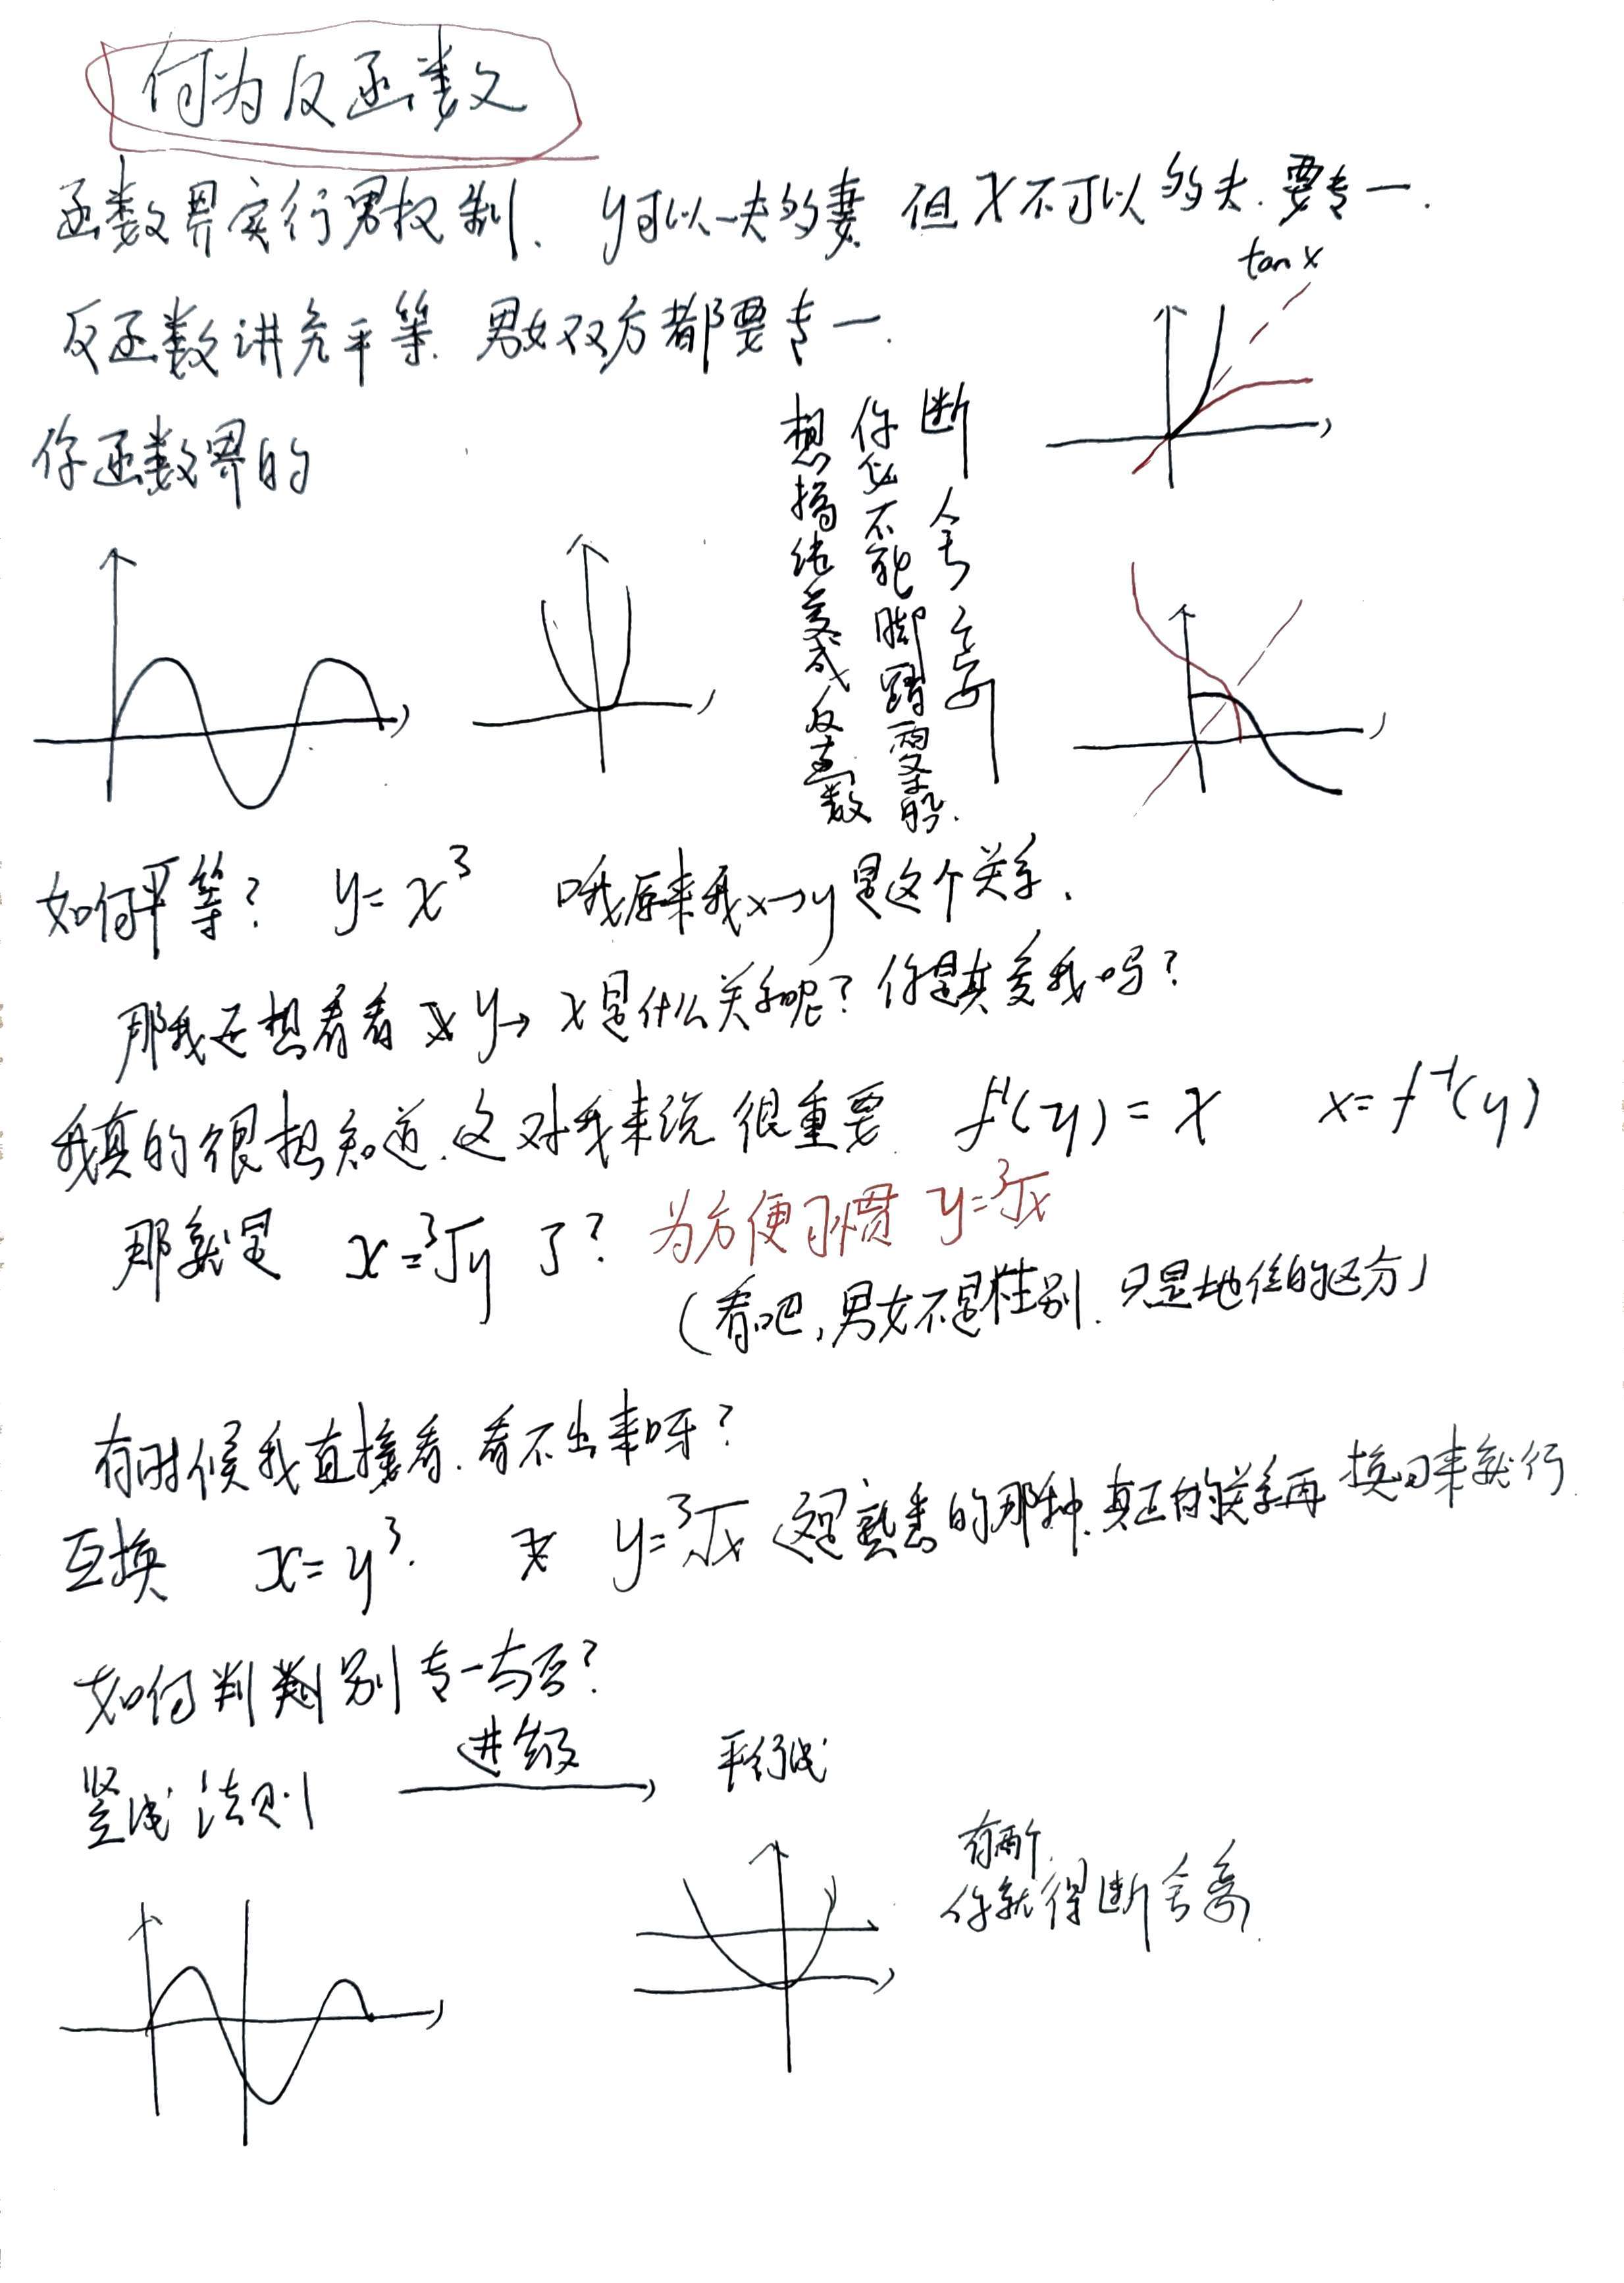 何为反函数
函数界实行男权制. y可以一夫多妻 但x不可以多夫.要专一.
tan x
反函数讲究平等. 男女双方都要专一.
你函数界的
想搞纯爱成反函数
你必不能脚踏两条船.
断舍离
如何平等? y=x³ 哦原来我x→y是这个关系.
那我还想看看 y→x是什么关系呢? 你是真爱我吗?
我真的很想知道.这对我来说很重要 f⁻¹(y)=x x=f⁻¹(y)
那就是 x=³√y 了? 为方便习惯 y=³√x
(看吧,男女不是性别.只是地位的区分)
有时候我直接看.看不出来呀?
互换 x=y³. y=³√x 这是熟悉的那种.真正的关系再换回来就行.
如何判别专一与否?
竖线法则 进级 平行线
有两个.
你就得断舍离.